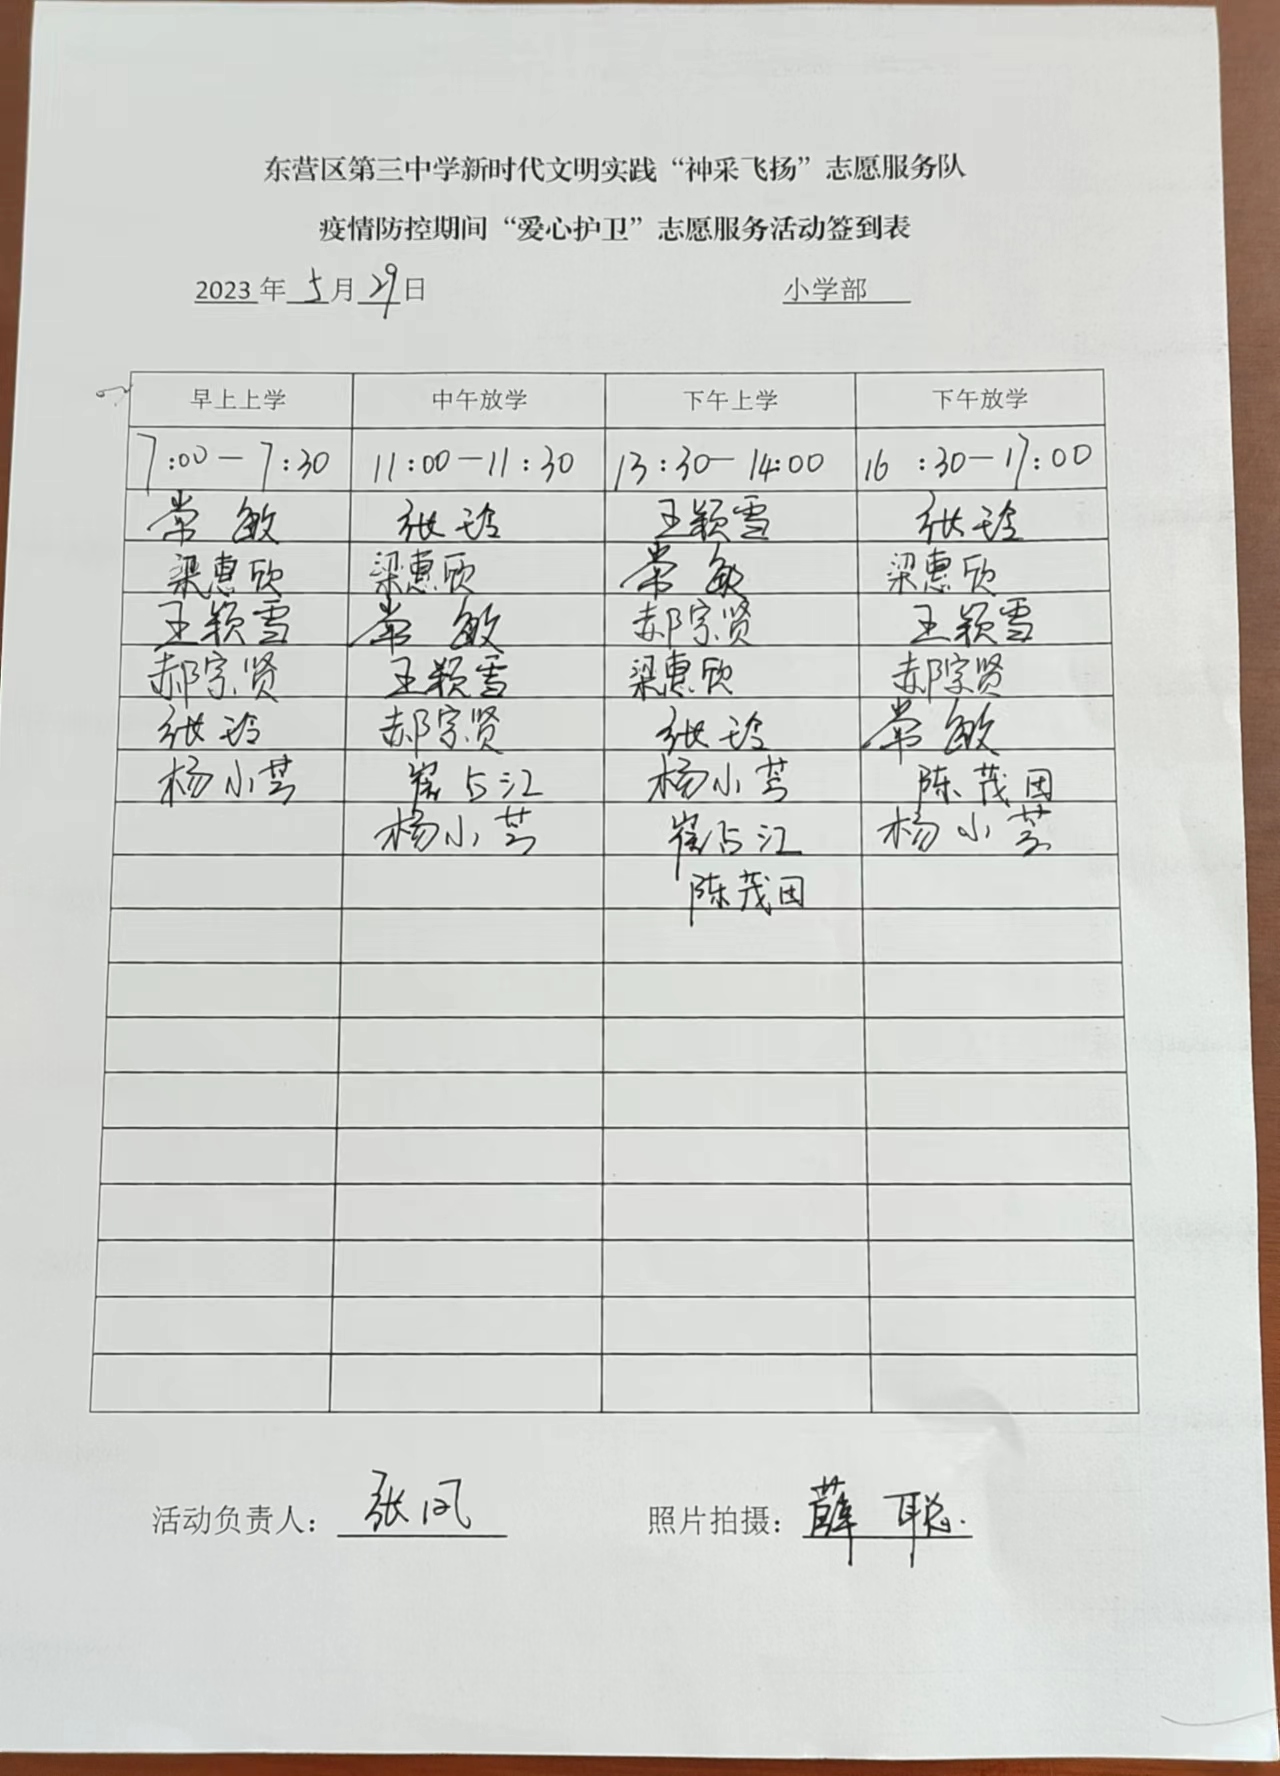 东营区第三中学新时代文明实践“神采飞扬”志愿服务队
疫情防控期间“爱心护卫”志愿服务活动签到表
2023 年 5 月 29 日 小学部
早上上学 中午放学 下午上学 下午放学
7:00-7:30 11:00-11:30 13:30-14:00 16:30-17:00
常敏 张玲 王颖雪 张玲
梁惠欣 梁惠欣 常敏 梁惠欣
王颖雪 常敏 郝宗贤 王颖雪
郝宗贤 王颖雪 梁惠欣 郝宗贤
张玲 郝宗贤 张玲 常敏
杨小芸 崔占江 杨小芸 陈茂田
杨小芸 崔占江 杨小芸
陈茂田
活动负责人：张凤 照片拍摄：薛聪